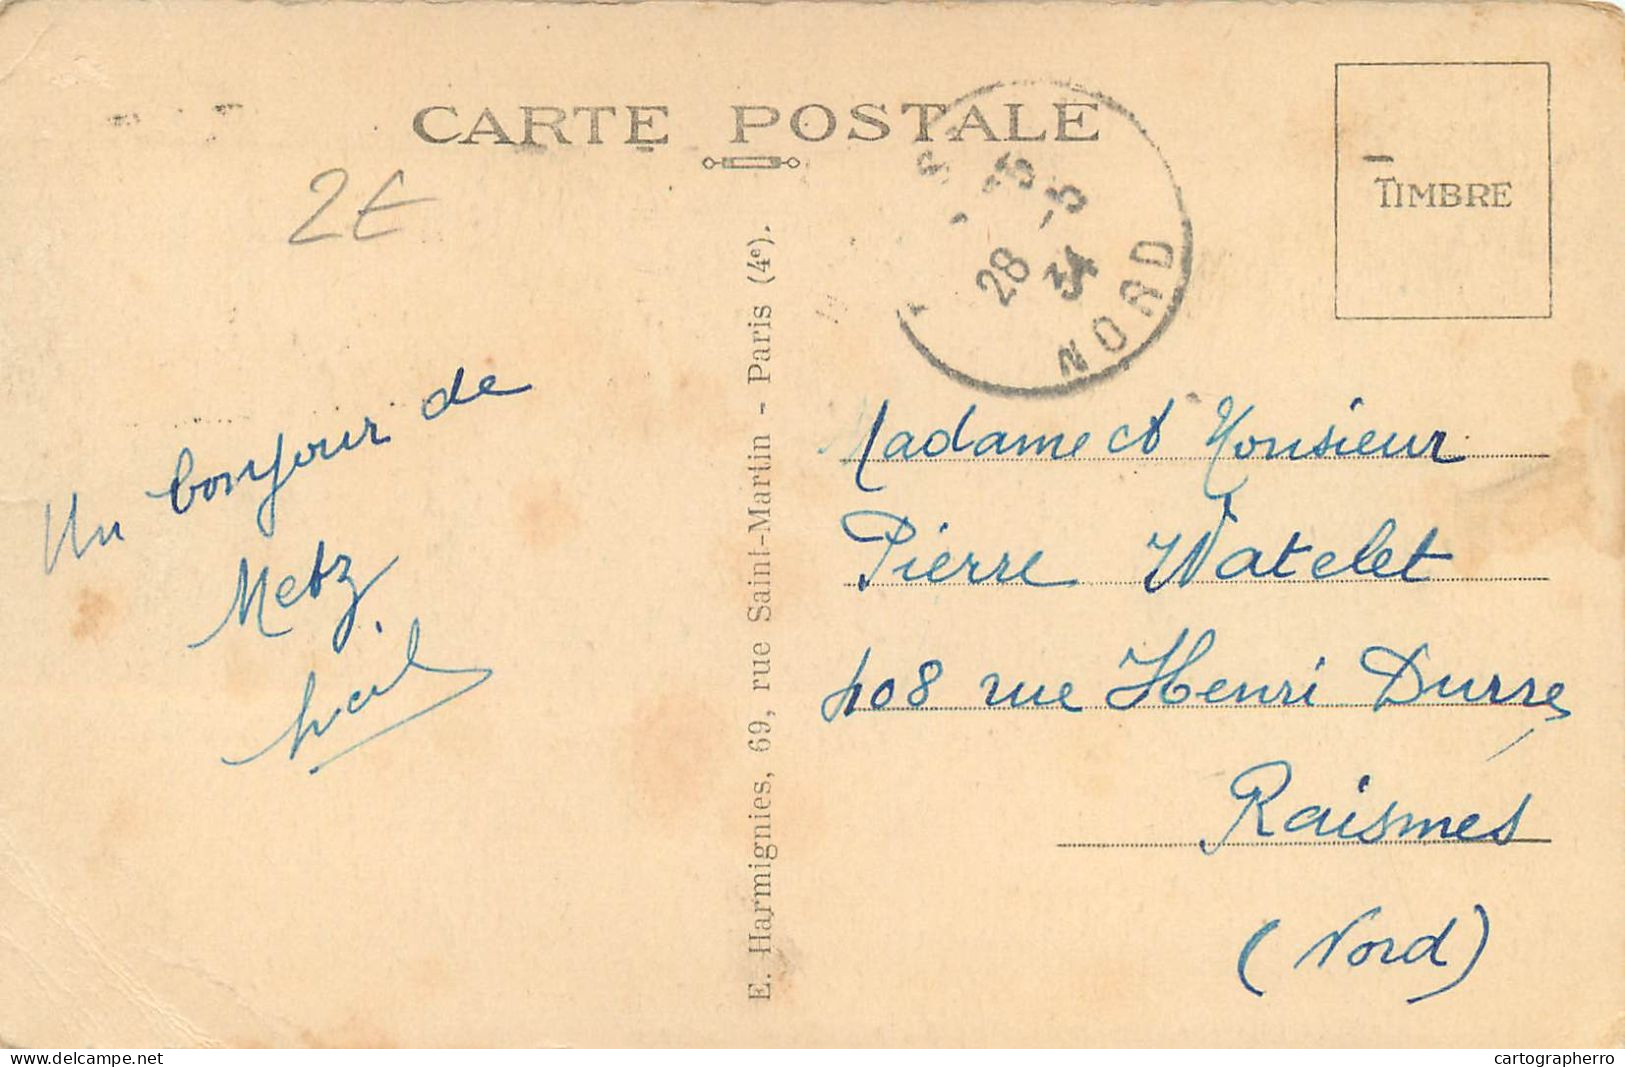 CARTE POSTALE
2€
28 -5
34
NORD
TIMBRE
Un bonjour de
Metz
E. Harmignies, 69, rue Saint-Martin - Paris (4e).
Madame et Monsieur
Pierre Watelet
408 rue Henri Durre
Raismes
(Nord)
www.delcampe.net
cartographerro